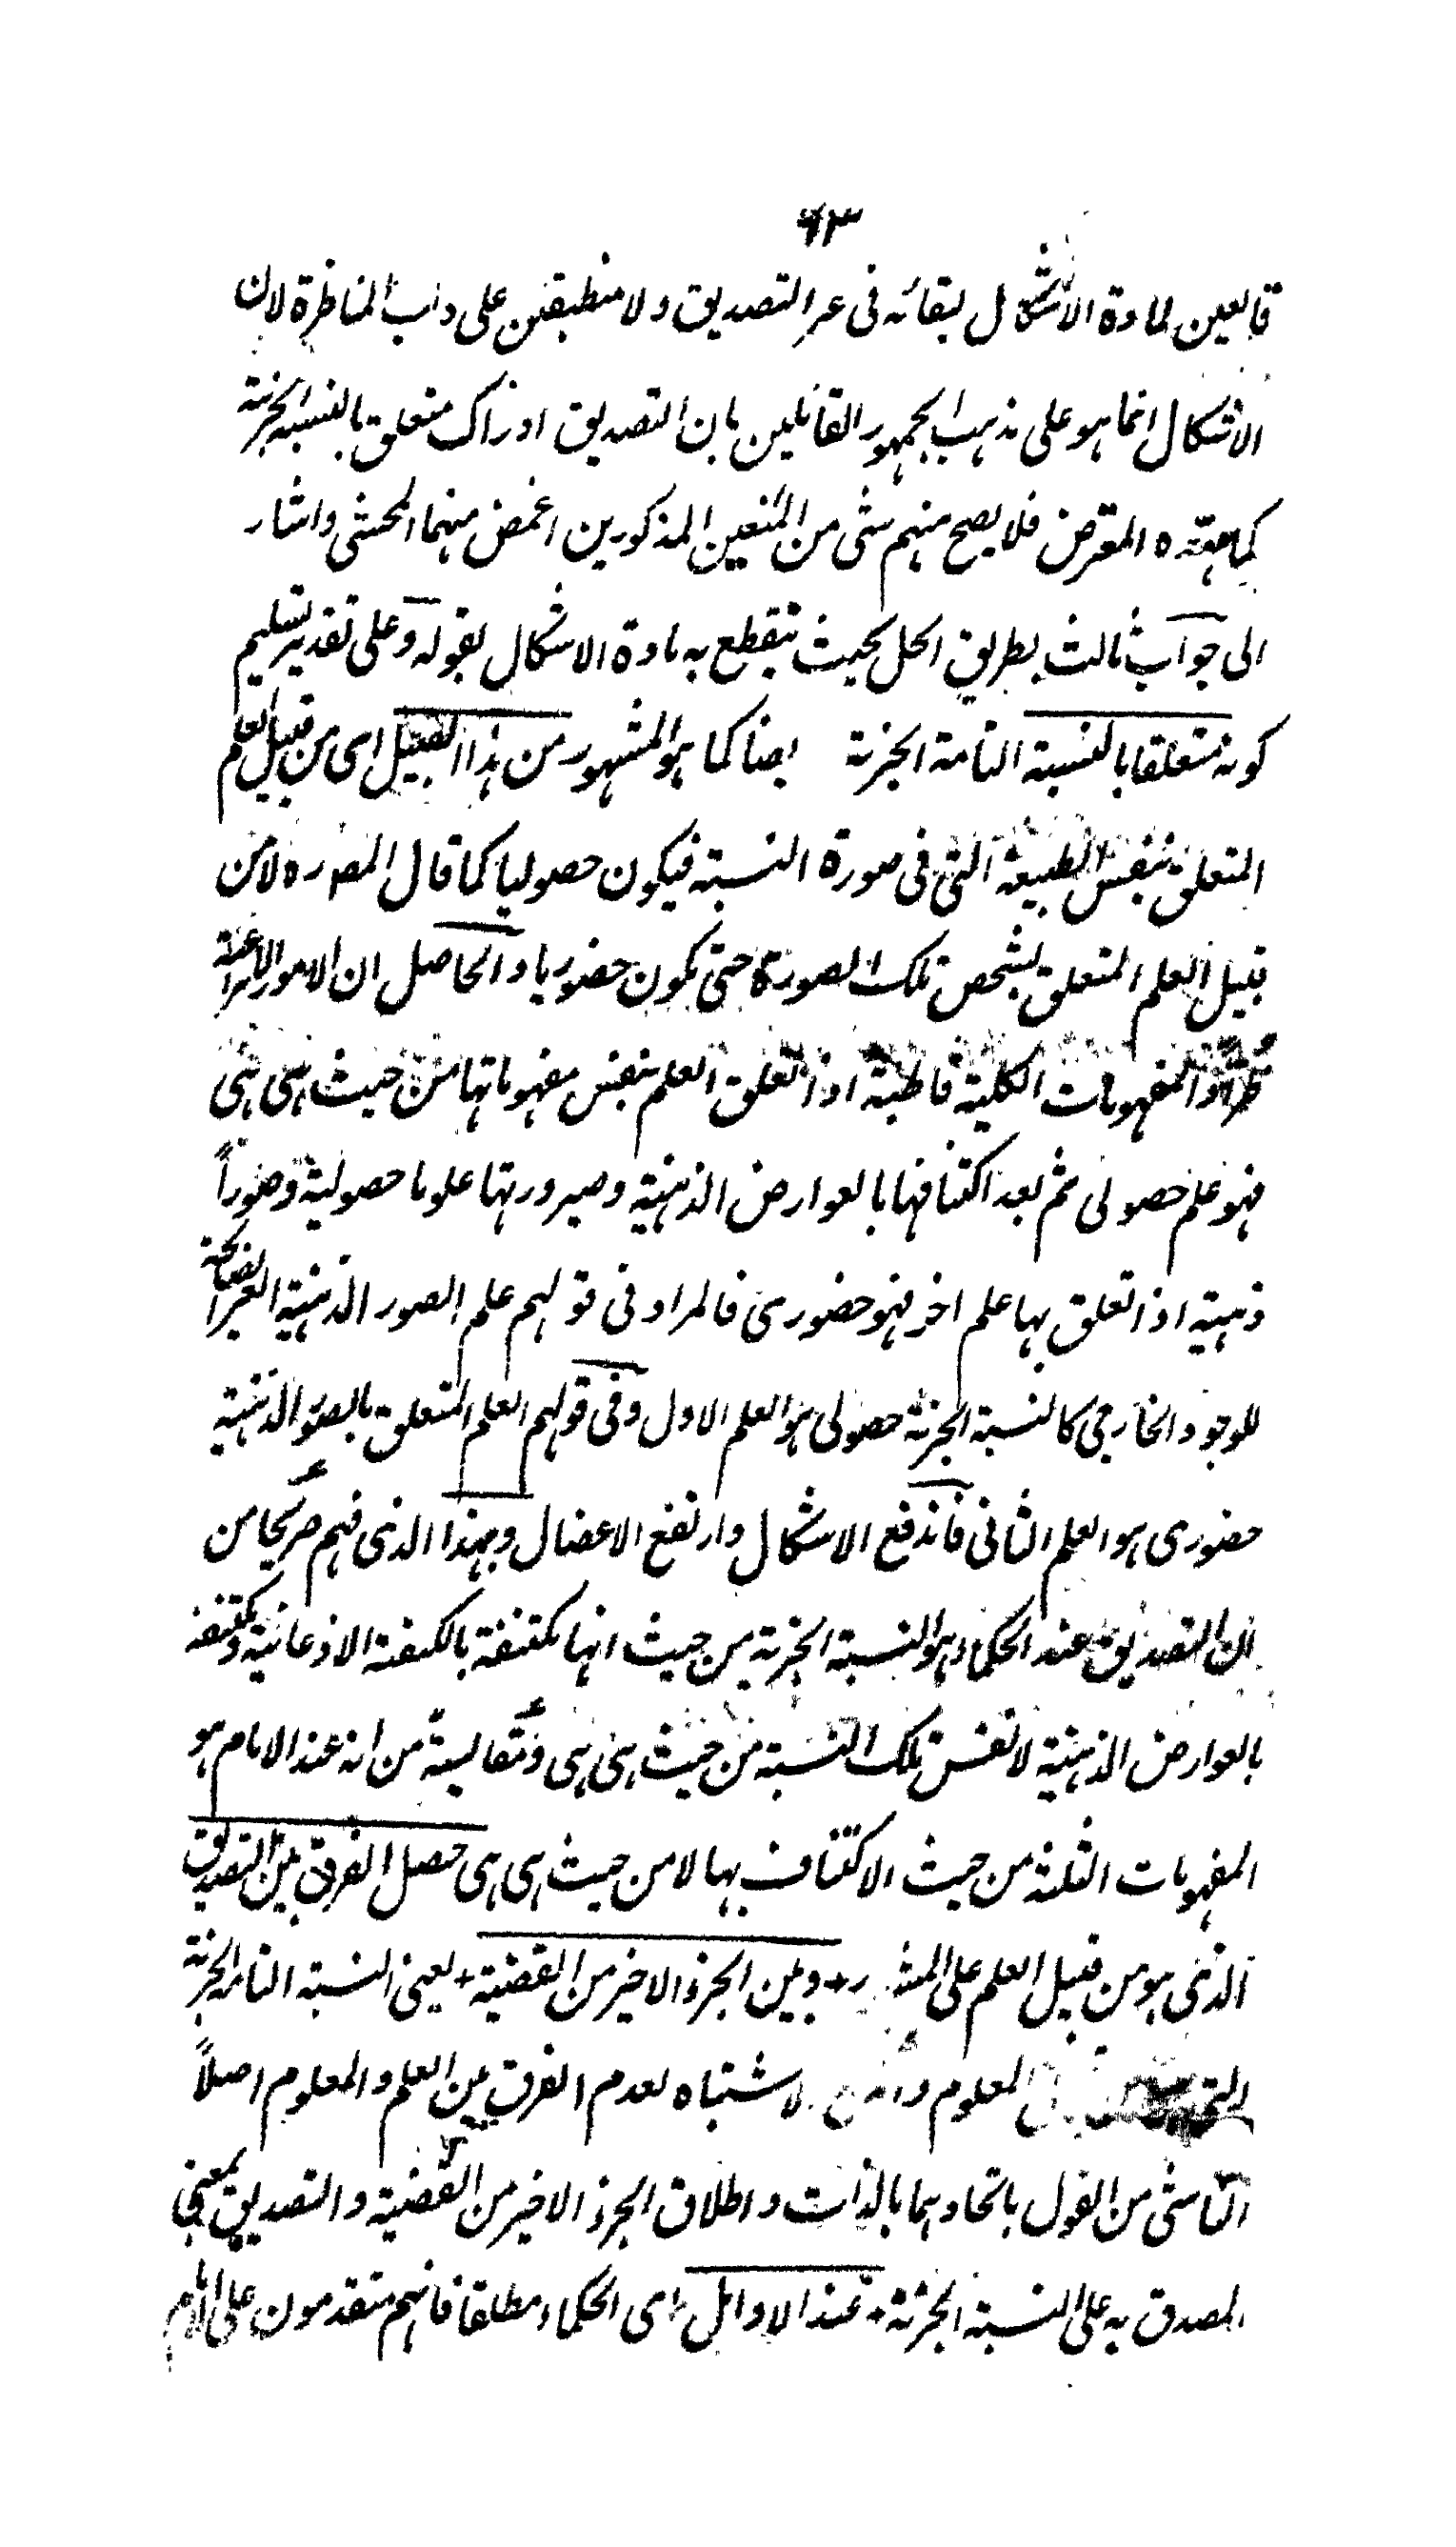 ٦٣
قالعين لمادة الاشكال لبقائه فى غير التصديق ولا منطبقين على داب المناظرة لان
الاشكال انما هو على مذهب الجمهور القائلين بان التصديق ادراك متعلق بالنسبة الخبرية
كما المعترض فلا يصح منهم شى من المنعين المذكورين اغمض منهما المحشى واشار
الى جواب ثالث بطريق الحل بحيث تنقطع به مادة الاشكال بقوله وعلى تقدير تسليم
كونه متعلقا بالنسبة التامة الخبرية ايضا كما هو المشهور من هذا القبيل اى من قبيل العلم
المتعلق بنفس الطبيعة التى فى صورة النسبة فيكون حصوليا كما قال المصره لا من
قبيل العلم المتعلق بشخص تلك الصورة حتى يكون حضوريا والحاصل ان الامور الانتزاعية
طرا والمفهومات الكلية قاطبة اذا تعلق العلم بنفس مفهوماتها من حيث هى هى
فهو علم حصولى ثم بعد اكتنافها بالعوارض الذهنية وصيرورتها علوما حصولية وصوراً
ذهنية اذا تعلق بها علم اخر فهو حضورى فالمراد فى قولهم علم الصور الذهنية الغير الصالحة
للوجود الخارجى كالنسبة الخبرية حصولى هو العلم الاول وفى قولهم العلم المتعلق بالصور الذهنية
حضورى هو العلم الثانى فاندفع الاشكال وارتفع الاعضال وبهذا الذى فهم صريحا من
ان التصديق عند الحكماء هو النسبة الخبرية من حيث انها مكتنفة بالكيفية الاذعانية ومكتنفة
بالعوارض الذهنية لا نفس تلك النسبة من حيث هى هى ومقايسة من انه عند الامام هو
المفهومات الثلثة من حيث الاكتناف بها لا من حيث هى هى حصل الفرق بين التصديق
الذى هو من قبيل العلم على وبين الجزء الاخير من القضية يعنى النسبة التامة الخبرية
المعلوم لاشتباه لعدم الفرق بين العلم والمعلوم اصلاً
الناشى من القول باتحادهما بالذات واطلاق الجزء الاخير من القضية والتصديق بمعنى
المصدق به على النسبة الخبرية عند الاوائل اى الحكماء مطلقا فانهم متقدمون على الامام